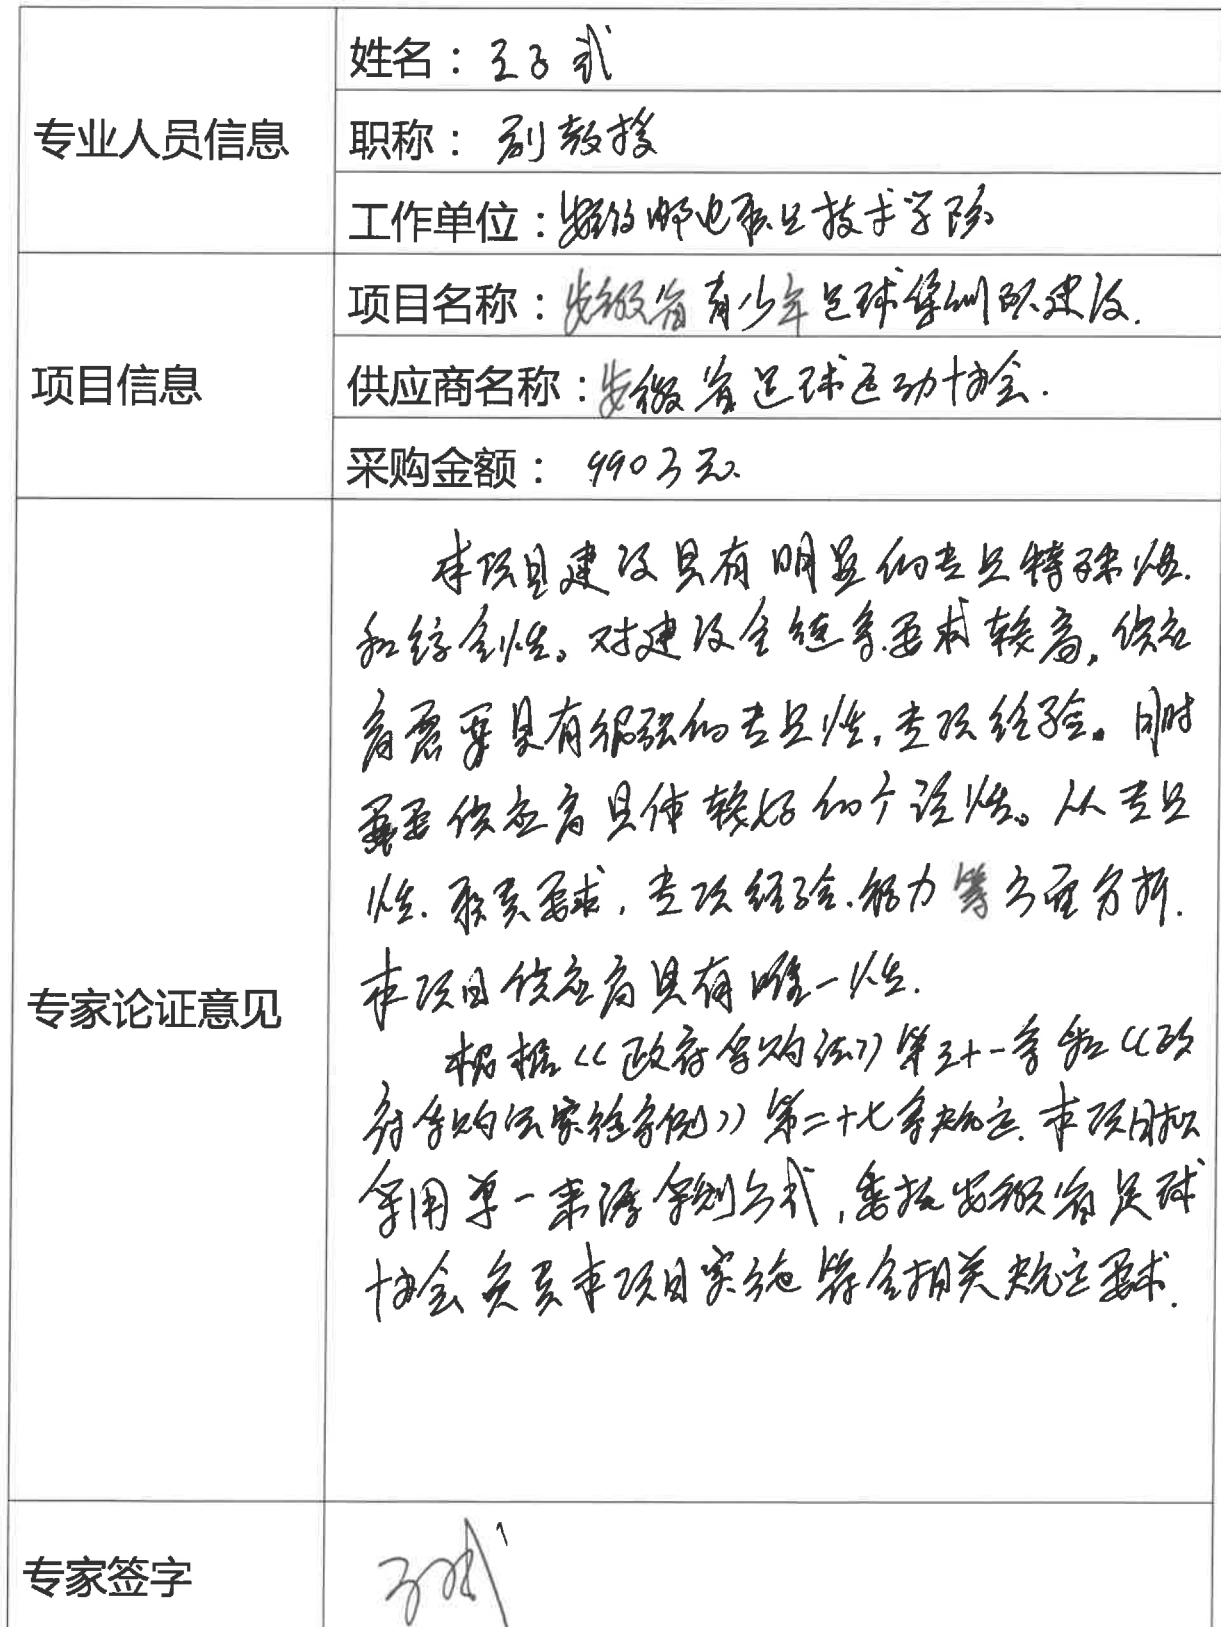 专业人员信息
姓名：王子武
职称：副教授
工作单位：安徽邮电职业技术学院
项目信息
项目名称：安徽省青少年足球集训队建设.
供应商名称：安徽省足球运动协会.
采购金额：990万元.
专家论证意见
本项目建设具有明显的专业特殊性.
和综合性。对建设全链条要求较高，供应
商需要具有很强的专业性，专项经验。同时
需要供应商具体较好的个性。从专业
性.职责要求，专项经验.能力等方面分析.
本项目供应商具有唯一性.
根据《政府采购法》第三十一条和《政
府采购法实施条例》第二十七条规定.本项目拟
采用单一来源采购方式，委托安徽省足球
协会负责本项目实施符合相关规定要求.
专家签字